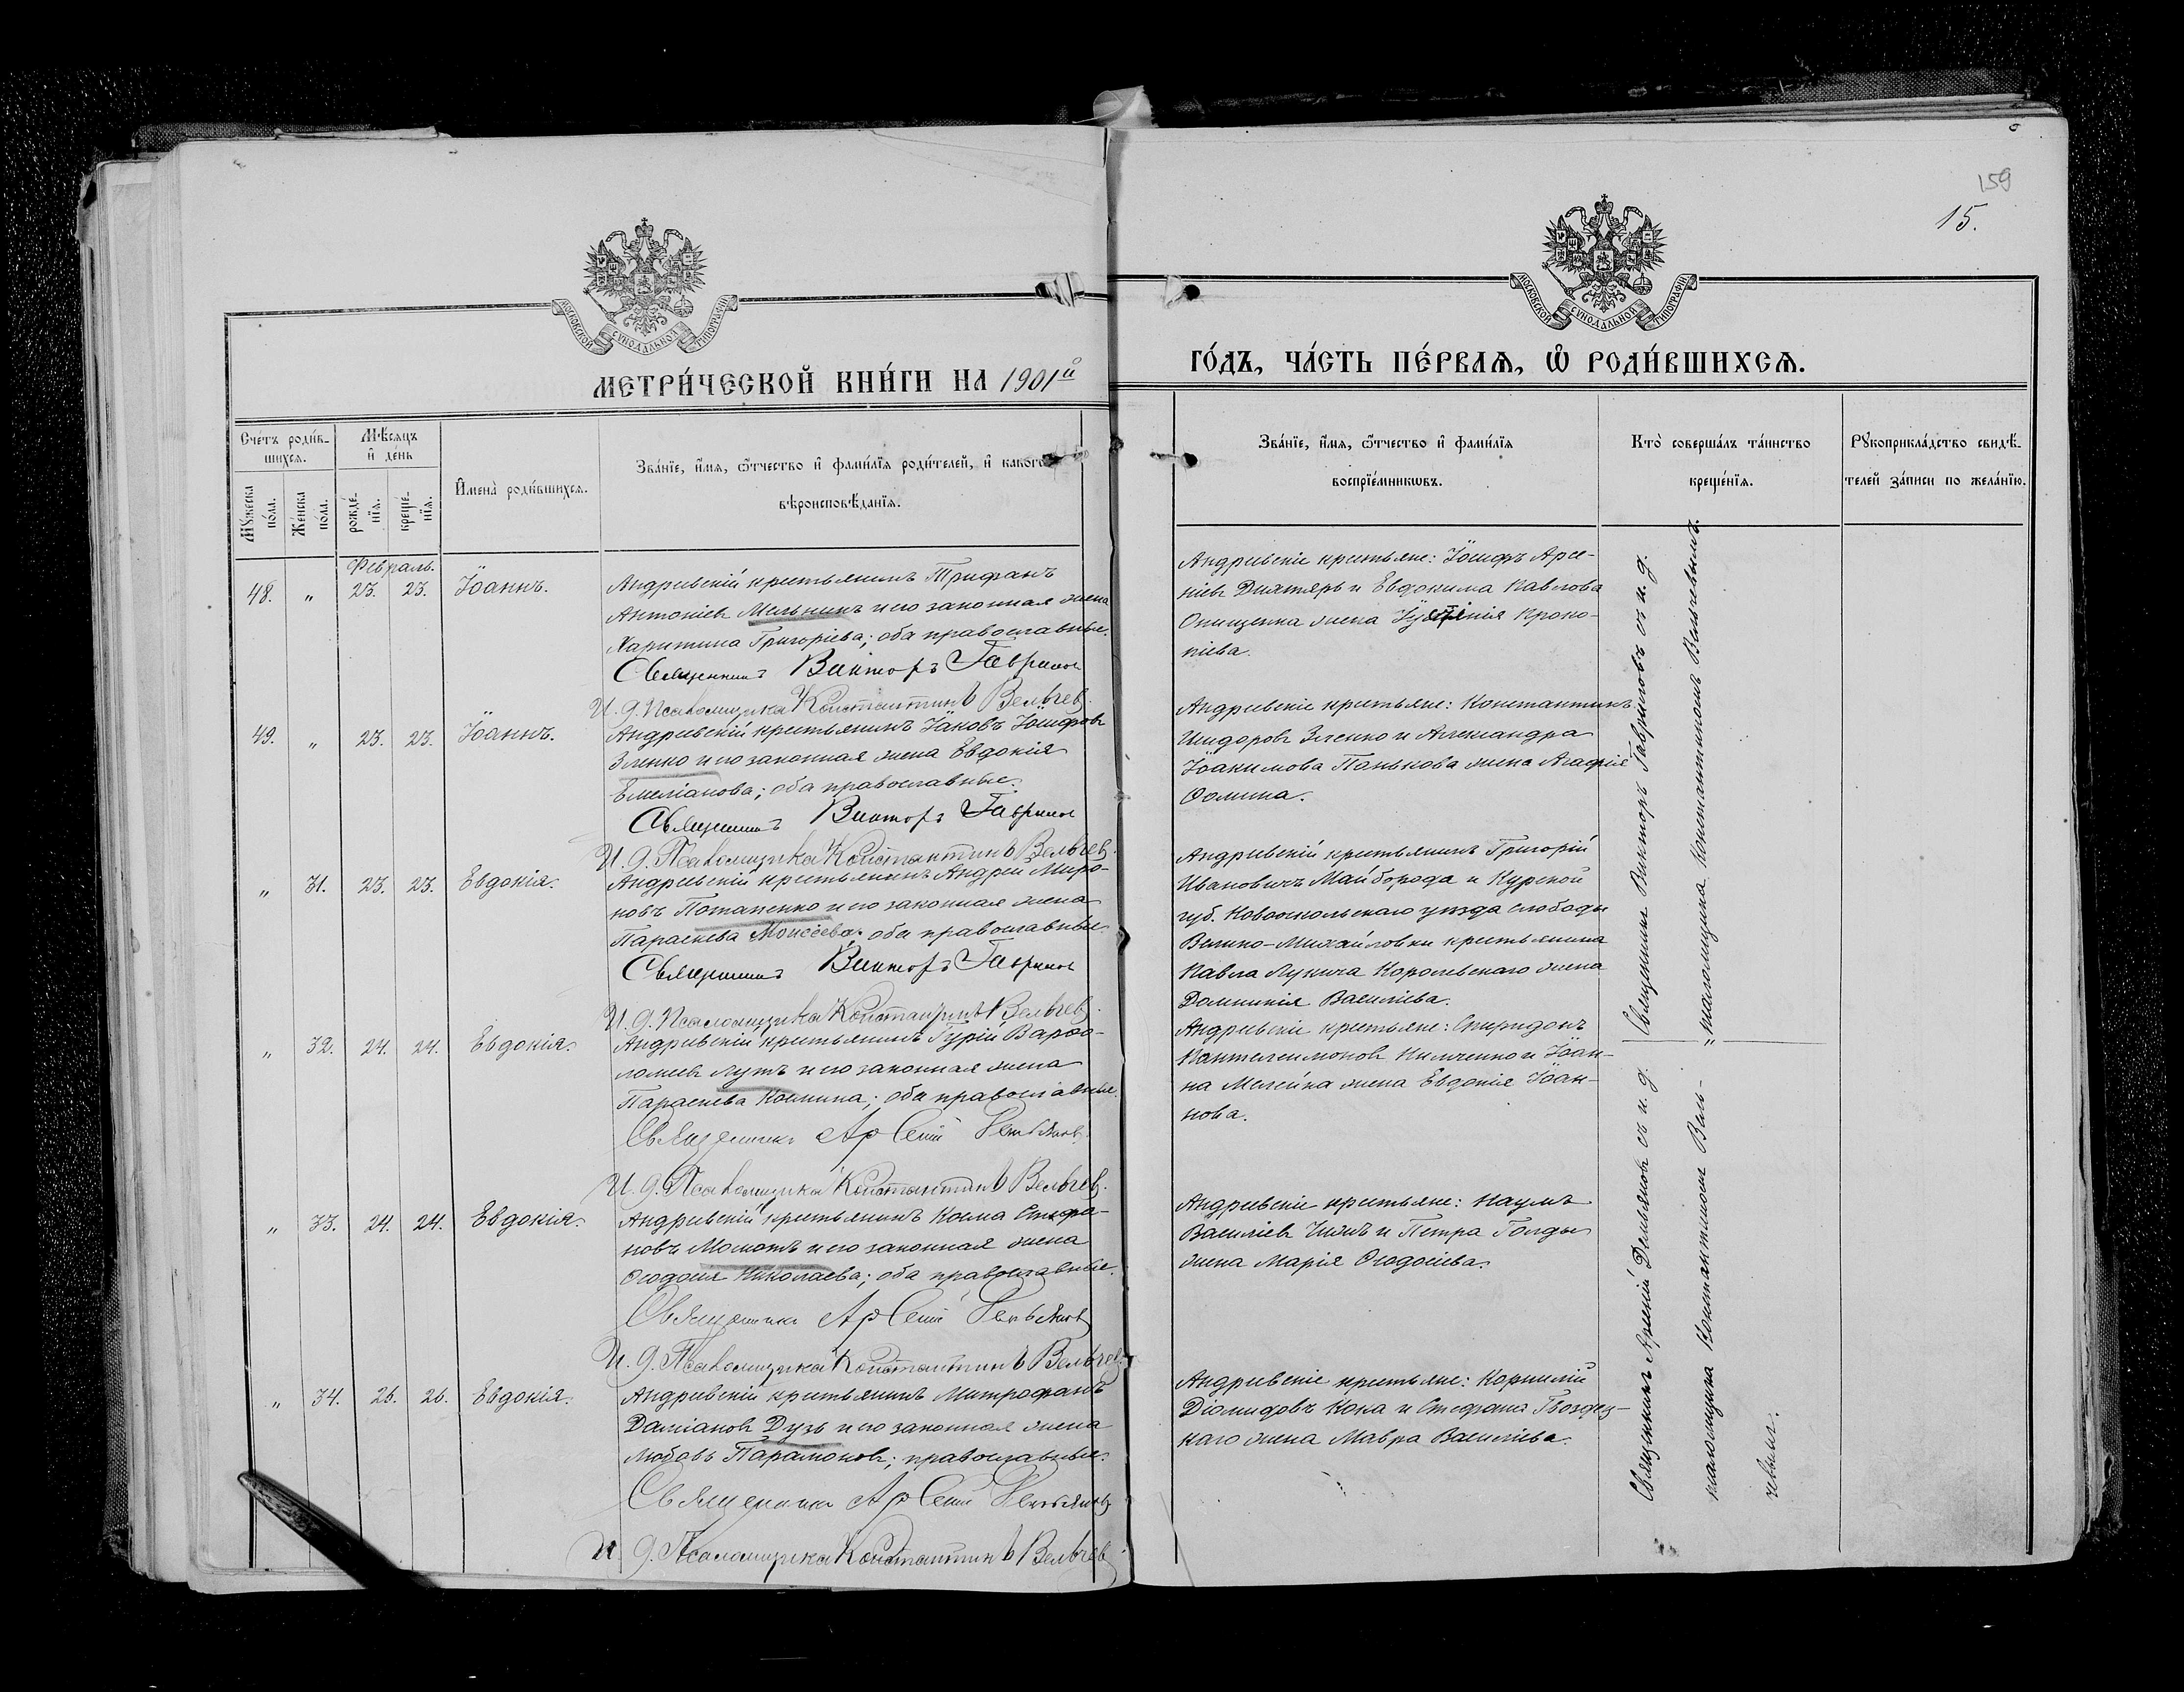 159
15.
МОСКОВСКОЙ СѴНОДАЛЬНОЙ ТИПОГРАФІИ
МОСКОВСКОЙ СѴНОДАЛЬНОЙ ТИПОГРАФІИ
МЕТРИ́ЧЕСКОЙ КНИ́ГИ НА 1901й
ГО́ДЪ, ЧА́СТЬ ПЕ́РВАѦ, Ѡ РОДИ́ВШИХСѦ.
Счетъ роди́в-
шихсѧ.
Мѣ́сѧцъ
и҆ де́нь
Мꙋ́жеска
по́ла.
Же́нска
по́ла.
рожде́-
нїѧ.
креще́-
нїѧ.
И҆мена̀ роди́вшихсѧ.
Зва́нїе, и҆́мѧ, ѻ҆́тчество и҆ фами́лїѧ роди́телей, и҆ какого
вѣроисповѣ́данїѧ.
Зва́нїе, и҆́мѧ, ѻ҆́тчество и҆ фами́лїѧ
воспрїе́мникѡвъ.
Кто̀ соверша́лъ та́инство
креще́нїѧ.
Рꙋкоприкла́дство свидѣ́-
телей за́писи по жела́нїю.
Февраль.
48. „ 23. 23. Іоаннъ.
Андреевскій крестьянинъ Трифанъ
Антоніев Мельникъ и его законная жена
Харитина Григоріева; оба православные.
Священникъ Викторъ Гаврилов
И. д. Псаломщика Константинъ Вельчев.
Андреевскіе крестьяне: Іосифъ Арсе-
ніев Дихтярь и Евдокима Павлова
Онищенка жена Прокo-
піева.
49. „ 23. 23. Іоаннъ.
Андреевскій крестьянинъ Іаковъ Іосифов
Зленко и его законная жена Евдокія
Емеліанова; оба православные.
Священникъ Викторъ Гаврилов
И. д. Псаломщика Константинъ Вельчев.
Андреевскіе крестьяне: Константинъ
Исидоровъ Зленко и Александра
Іоакимова Панькова жена Агафія
Ѳомина.
„ 31. 23. 23. Евдокія.
Андреевскій крестьянинъ Андрей Миро-
новъ Потапенко и его законная жена
Параскева Моисеева; оба православные.
Священникъ Викторъ Гаврилов
И. д. Псаломщика Константинъ Вельчев.
Андреевскій крестьянинъ Григорій
Ивановичъ Майборода и Курской
губ. Новооскольскаго уезда слободы
Велико-Михайловки крестьянина
Павла Лукича Королевскаго жена
Домникія Василіева.
„ 32. 24. 24. Евдокія.
Андреевскій крестьянинъ Гурій Варѳо-
ломеев Лутъ и его законная жена
Параскева Космина; оба православные.
Священникъ Арсеній Демьянов
И. д. Псаломщика Константинъ Вельчев.
Андреевскіе крестьяне: Спиридонъ
Пантелеимонов Кимченко и Іоан-
на Мелейна жена Евдокія Іоан-
нова.
„ 33. 24. 24. Евдокія.
Андреевскій крестьянинъ Косма Стефа-
новъ Момотъ и его законная жена
Ѳеодосія Николаева; оба православные.
Священникъ Арсеній Демьянов
И. д. Псаломщика Константинъ Вельчев.
Андреевскіе крестьяне: Наумъ
Василіев Чижъ и Петра Голды
жена Марія Ѳеодосіева.
„ 34. 26. 26. Евдокія.
Андреевскій крестьянинъ Митрофанъ
Даміанов Дузь и его законная жена
Любовь Парамонов; православные.
Священникъ Арсеній Демьянов
И. д. Псаломщика Константинъ Вельчев
Андреевскіе крестьяне: Корнилій
Діомидовъ Кока и Стефана Гвоздец-
каго жена Мавра Василіева.
Священник Викторъ Гавриловъ съ и. д.
„псаломщика Константиномъ Вельчевымъ.
Священникъ Арсеній Демьянов съ и. д.
псаломщика Константином Вель-
чевым.